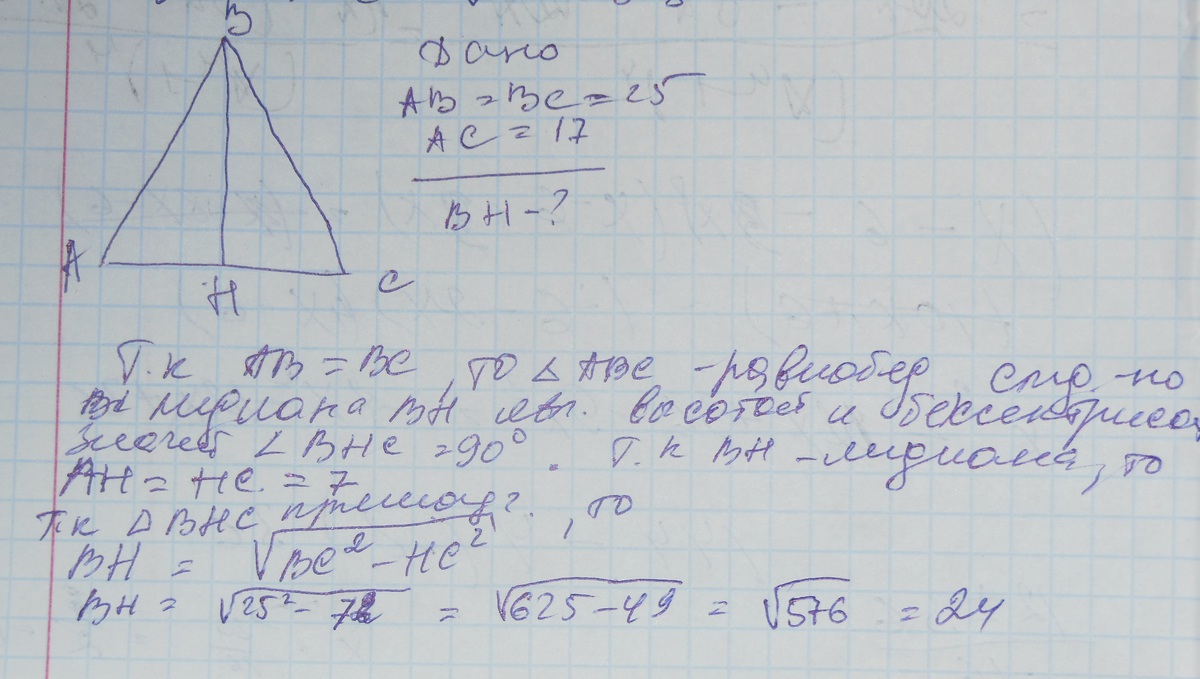 B
A
H
C
Дано
AB = BC = 25
AC = 17
BH - ?
Т.к AB = BC, то △ ABC - равнобед след-но
медиана BH явл. высотой и бессектрисой,
значит ∠ BHC = 90°. Т.к BH - медиана, то
AH = HC. = 7
Т.к △ BHC прямоуг., то
BH = √BC² - HC²
BH = √25² - 7² = √625 - 49 = √576 = 24